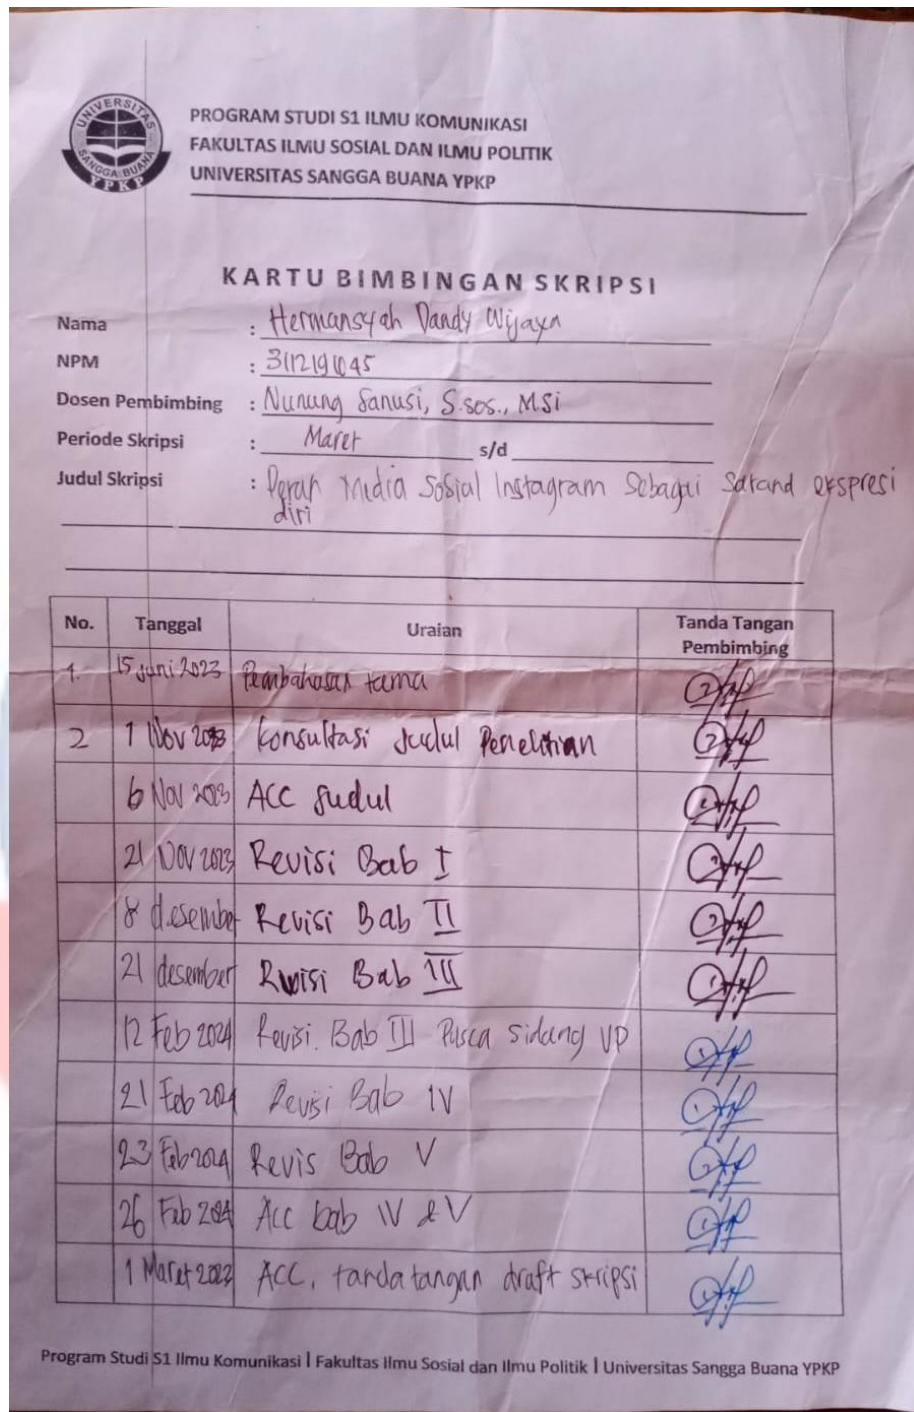 UNIVERSITAS SANGGA BUANA YPKP
PROGRAM STUDI S1 ILMU KOMUNIKASI
FAKULTAS ILMU SOSIAL DAN ILMU POLITIK
UNIVERSITAS SANGGA BUANA YPKP
KARTU BIMBINGAN SKRIPSI
Nama : Hermansyah Dandy Wijaya
NPM :
Dosen Pembimbing : Nunung Sanusi, S.sos., MSi
Periode Skripsi : Maret s/d
Judul Skripsi : Peran Media Sosial Instagram Sebagai Sarana ekspresi
diri
No. Tanggal Uraian Tanda Tangan Pembimbing
1. 15 juni 2023 Pembahasan tema
2 1 Nov 2023 Konsultasi Judul Penelitian
6 Nov 2023 ACC Judul
21 Nov 2023 Revisi Bab I
8 desember Revisi Bab II
21 desember Revisi Bab III
12 Feb 2024 Revisi. Bab III Pasca Sidang UP
21 Feb 2024 Revisi Bab IV
23 Feb 2024 Revis Bab V
26 Feb 2024 Acc bab IV & V
1 Maret ACC, tanda tangan draft skripsi
Program Studi S1 Ilmu Komunikasi | Fakultas Ilmu Sosial dan Ilmu Politik | Universitas Sangga Buana YPKP